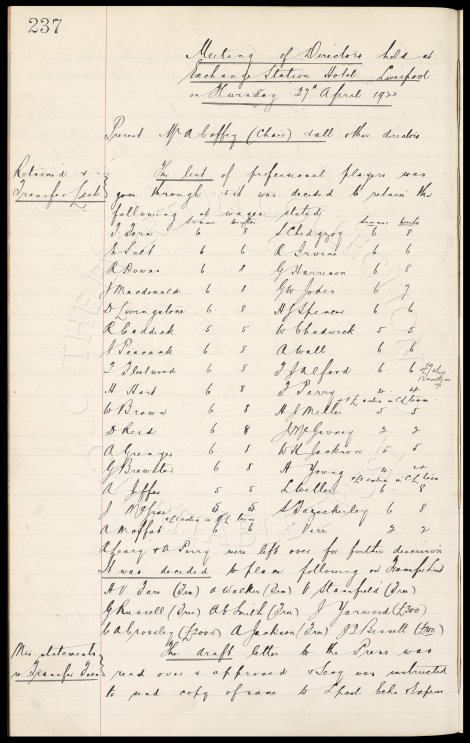 237
Meeting of Directors held at
Exchange Station Hotel, Liverpool
on Thursday 27th April 1922
Present Mr A Coffey (Chair) & all other directors
Retained &
Transfer List
The list of professional players was
gone through & it was decided to retain the
following at wages stated
Summer Winter Summer Winter
T Fern 6 8 S Chedgzoy 6 8
E Salt 6 6 R Irvine 6 6
R Downs 6 8 G Harrison 6 8
J Macdonald 6 8 GW Jones 6 7
D Livingstone 6 8 HJ Spencer 6 6
R Caddick 5 5 W Chadwick 5 5
J Peacock 6 8 A Wall 6 6
T Fleetwood 6 8 FJ Alford 6 6
H Hart 6 8 F Parry 4 4
+ £1 extra in CL team
W Brown 6 8 HJ Miller 5 5
D Reid 6 8 J McGivney 2 2
A Grenyer 6 8 WH Jackson 5 5
G Brewster 6 8 A Young 4 4
+ £1 extra in CL team
A Jeffs 5 5 L Weller 6 8
J 5 5 S Bazeckerley 6 8
+ £1 extra in CL team
A Moffat 6 6 Virr 2 2
Leary & A Perry were left over for further discussion
It was decided to place following on Transfer List
A V Fare (Free) A Walker (Free) V Stansfield (Free)
G Russell (Free) A E Smith (Free) J Yarwood (£300)
C A Crossley (£2000) A Jackson (Free) J T Bissett
Mis statements
re Transfer Fees
The draft letter to the Press was
read over & approved & Secy was instructed
to send copy of same to L'pool Echo & Express